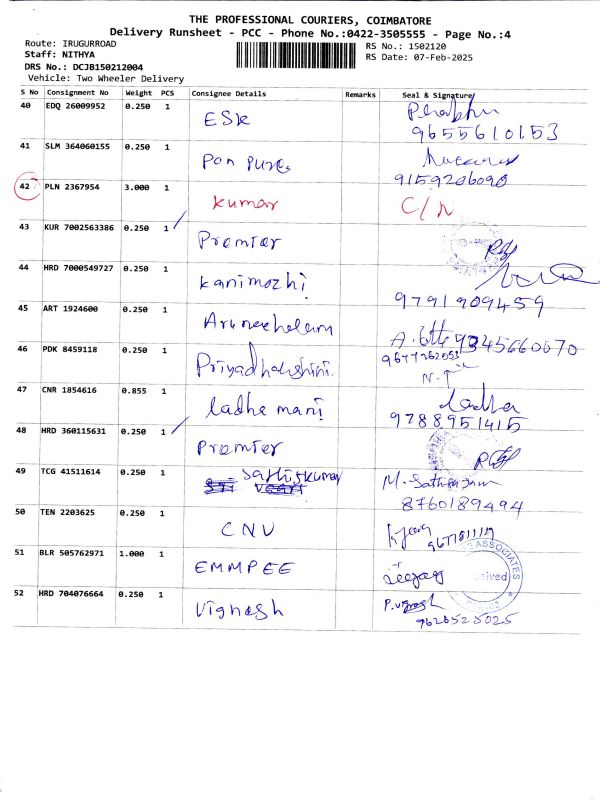 THE PROFESSIONAL COURIERS, COIMBATORE
Delivery Runsheet - PCC - Phone No.:0422-3505555 - Page No.:4
Route: IRUGURROAD
RS No.: 1502120
Staff: NITHYA
RS Date: 07-Feb-2025
DRS No.: DCJB150212004
Vehicle: Two Wheeler Delivery
S No Consignment No Weight PCS Consignee Details Remarks Seal & Signature
40 EDQ 26009952 0.250 1 ESK Prabhu
9655610153
41 SLM 364060155 0.250 1 Pon Pure
9159206090
42 PLN 2367954 3.000 1 Kumar C/N
43 KUR 7002563386 0.250 1 Premier
44 HRD 7000549727 0.250 1 Kanimozhi
9791909459
45 ART 1924600 0.250 1 Arunachalam 9345660070
46 PDK 8459118 0.250 1 Priyadharshini
47 CNR 1854616 0.855 1 Radha mani Radha
9788951415
48 HRD 360115631 0.250 1 Premier
49 TCG 41511614 0.250 1 Sathiskumar M.
8760189494
50 TEN 2203625 0.250 1 CNV
9677811119
51 BLR 505762971 1.000 1 EMMPEE ASSOCIATES
52 HRD 704076664 0.250 1 Vignesh P. Vignesh
9626525025